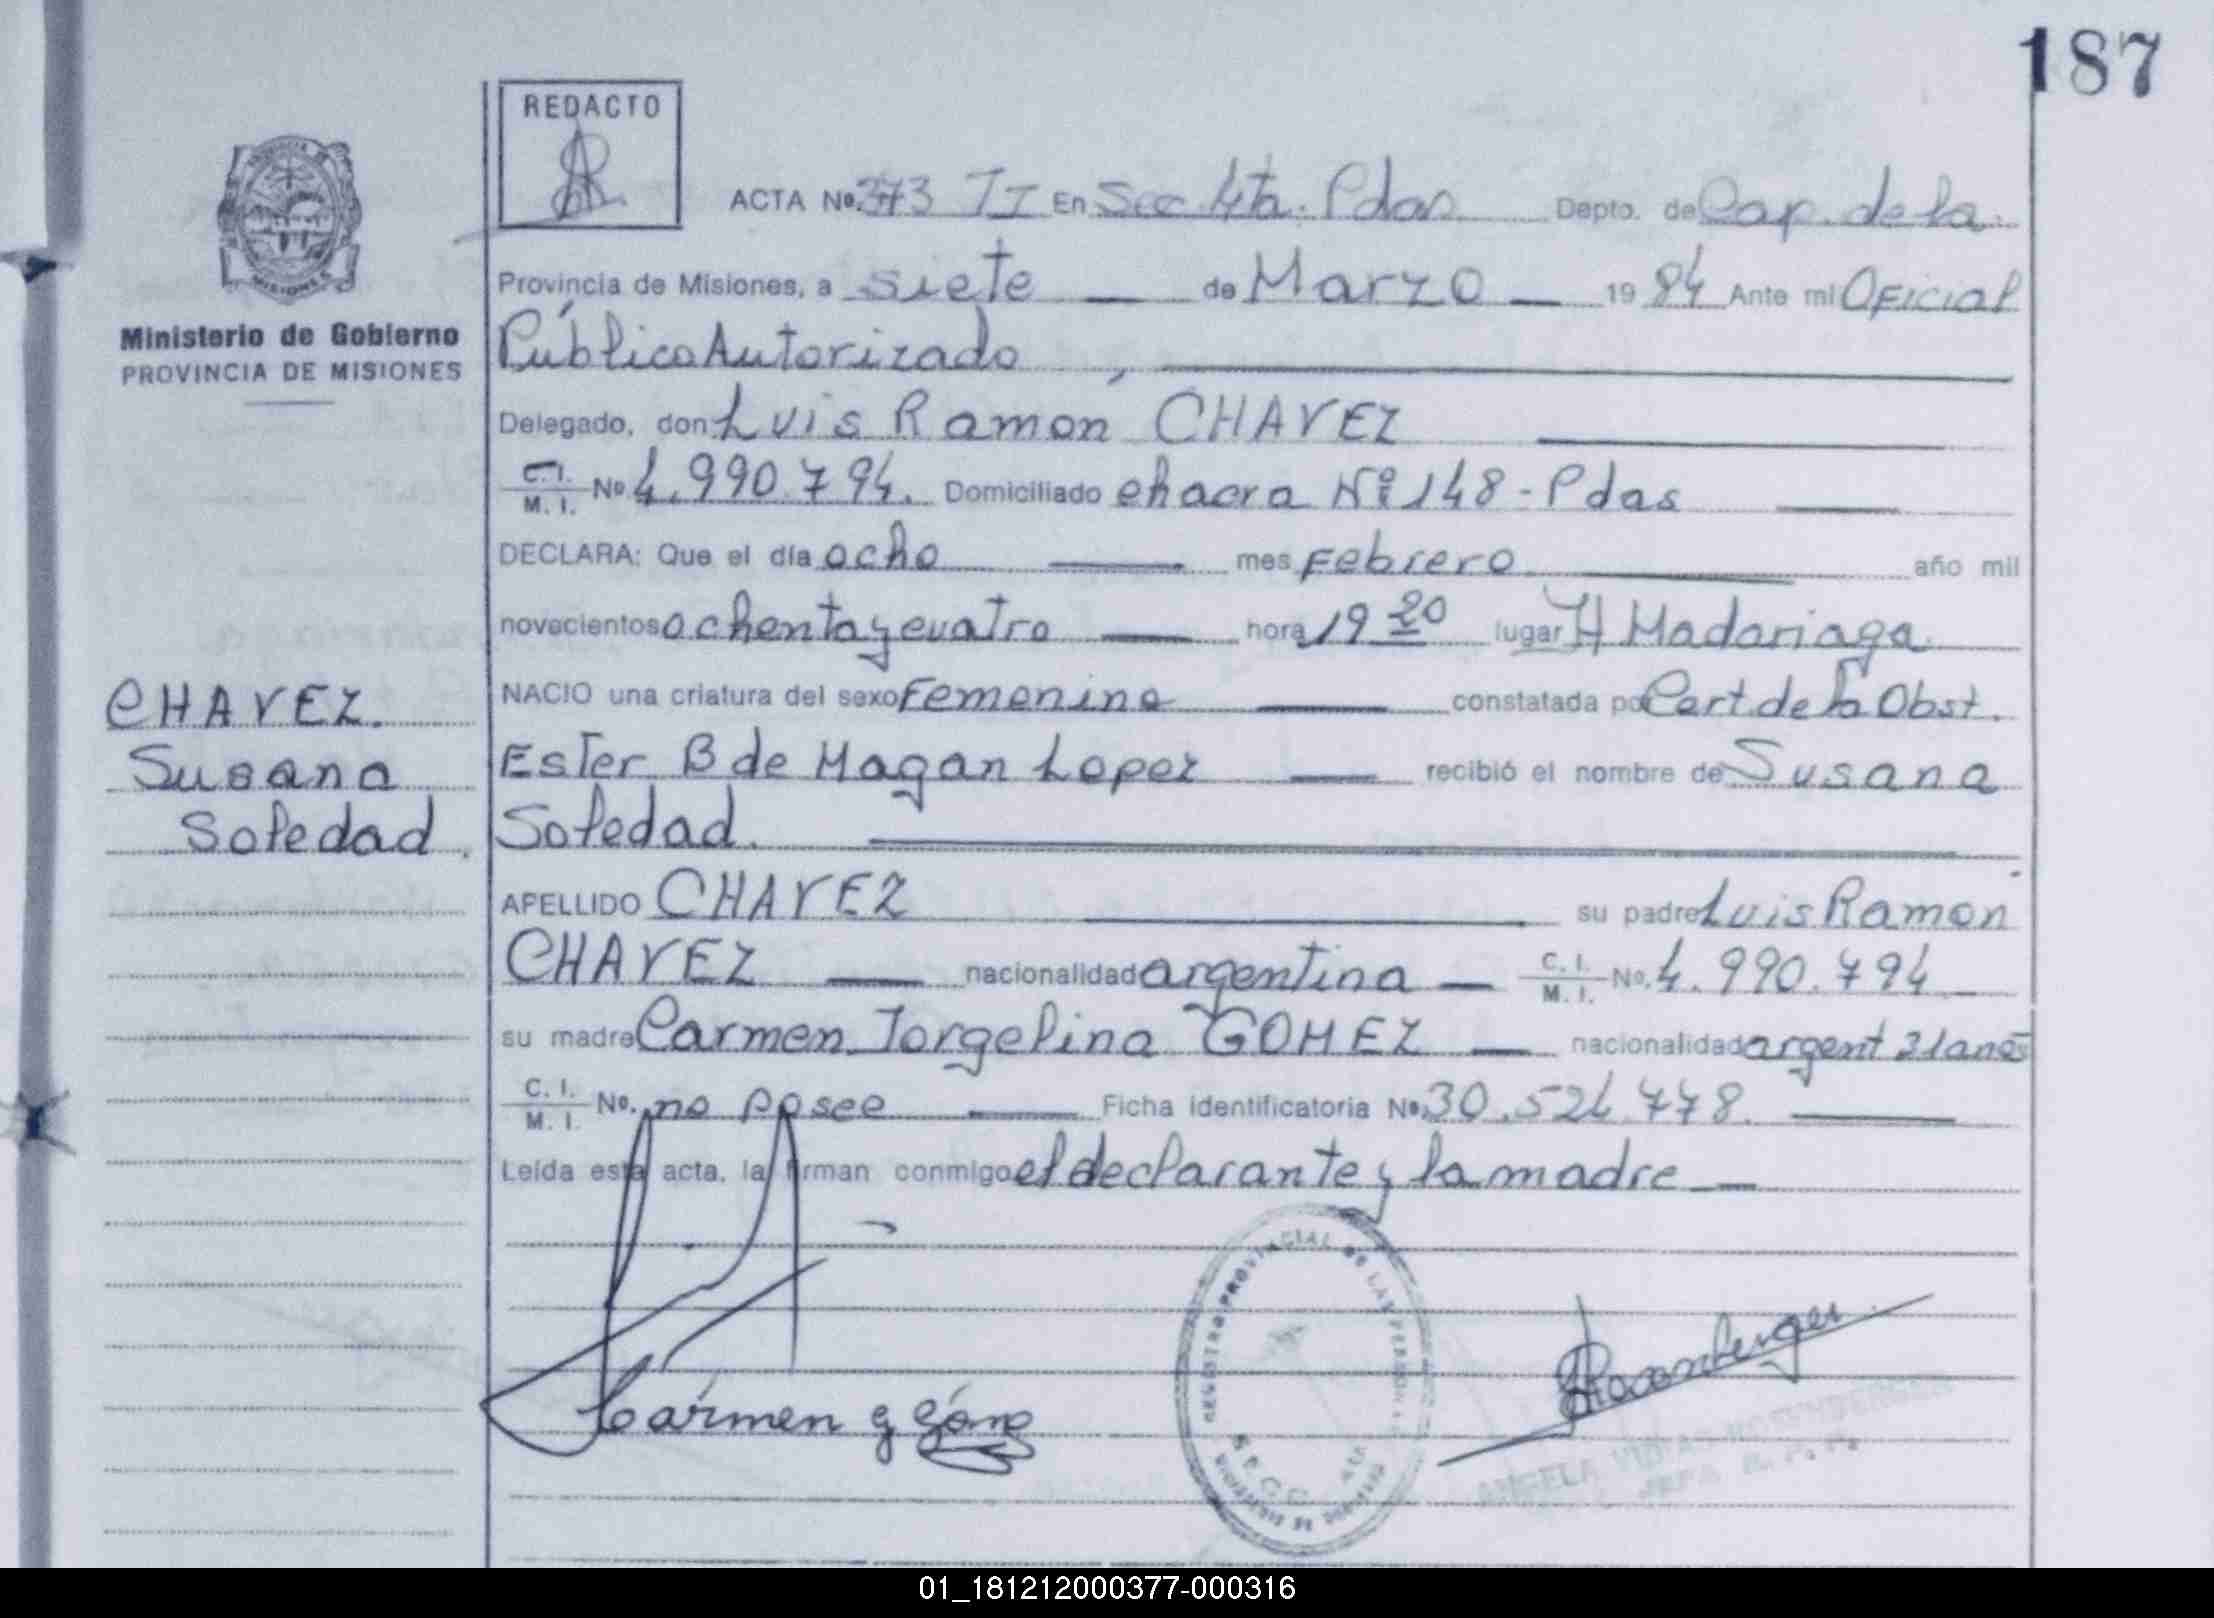 187
REDACTO
ACTA Nº 373 II En Sec 4ta. Pdas Depto. de Cap. de la
Provincia de Misiones, a siete de Marzo 1984 Ante mí Oficial
Ministerio de Gobierno
PROVINCIA DE MISIONES
Público Autorizado,
Delegado, don Luis Ramon CHAVEZ
C.I. M.I. Nº 4.990.794. Domiciliado chacra Nº 148 - Pdas
DECLARA: Que el día ocho mes Febrero año mil
novecientos ochenta y cuatro hora 19 20 lugar H Madariaga
CHAVEZ.
NACIO una criatura del sexo Femenino constatada por Cert. de la Obst.
Susana
Ester B de Magan Lopez recibió el nombre de Susana
Soledad.
Soledad.
APELLIDO CHAVEZ su padre Luis Ramon
CHAVEZ nacionalidad argentina C.I. M.I. Nº 4.990.794
su madre Carmen Jorgelina GOMEZ nacionalidad argent 21 anos
C.I. M.I. Nº no posee Ficha identificatoria Nº 30.524.778.
Leída esta acta, la firman conmigo el declarante y la madre
REGISTRO PROVINCIAL DE LAS PERSONAS
Carmen g Góme
SECC. 4ta
ANGELA ROSENBERGER
JEFA R.P.P.
01_181212000377-000316